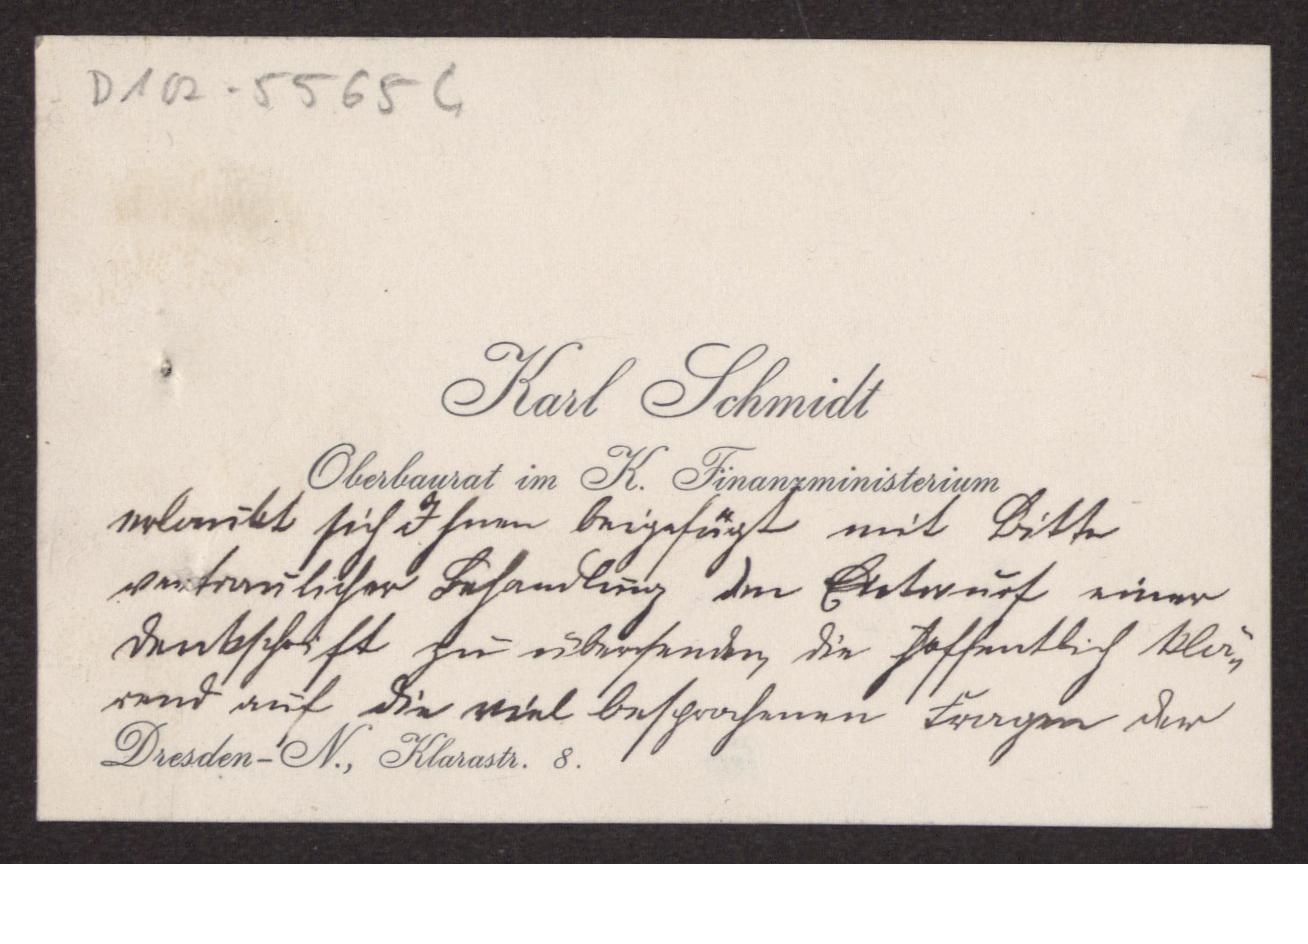 D102-5565 L
Karl Schmidt
Oberbaurat im K. Finanzministerium
erlaubt sich Ihnen beigefügt mit Bitte
vertraulicher Behandlung den Entwurf einer
Denkschrift zu übersenden, die hoffentlich klä-
rend auf die viel besprochenen Fragen der
Dresden-N., Klarastr. 8.